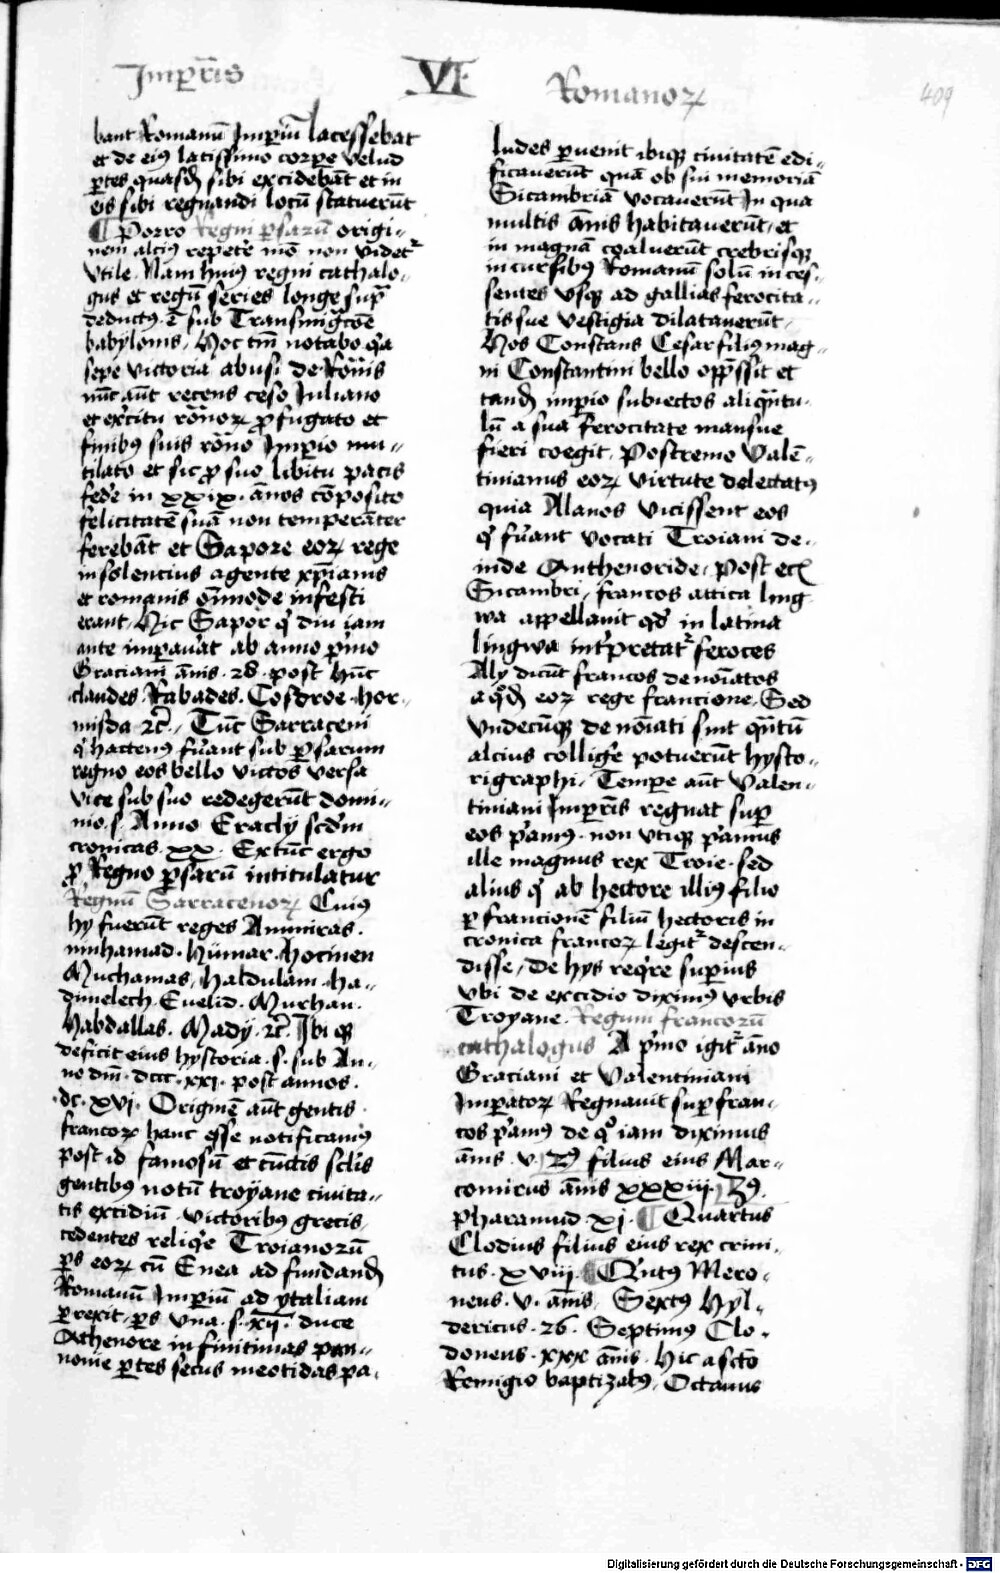 Imꝑr̄is VI Romanoꝝ 409
bant Romanū Imperiū lacessebāt
et de eiꝰ latissimo corꝑe velud
ꝑtes quasdā sibi excidebāt et in
eis sibi regnandi locū statuerūt
¶ Porro Regni ꝑsarū origi⸗
nem alciꝰ repetēr mō non videt᷑
vtile. Nam huiꝰ regni cathalo⸗
gus et regū series longe supͣ
deductꝰ ē sub Transmigͣcōe
babylonis, Hoc tm̄ notabo qͥa
sepe victoria abusi de Romīs
nūc aūt recens ceso Juliano
et ex̓citu rōnoꝝ ꝓfugato et
finibꝰ suis rōno Imꝑio mu⸗
tilato et sic ꝓ suo libitu pacis
fed̓e in xxix. ānos cōposito
felicitatē suā non temperāter
ferebāt et Sapore eoꝝ rege
insolencius agente xp̄ianis
et romanis om̄ode infesti
erant, Hic Sapor qͥ diu iam
ante imꝑau̓at ab anno pͥmo
Graciani ānis. 28. post hūc
claudes. Kabades. Cosdroe. Hor⸗
misda ⁊c̄. Tūc Sarraceni
qͥ hactenꝰ fūant sub ꝑsarum
regno eos bello victos versa
vice sub suo redegerūt domi⸗
nio. s. Anno Eraclij scdm
cronicas. xx. Ex tūc ergo
ꝓ Regno ꝑsarū intitulatur
Regnū Sarracenoꝝ Cuiꝰ
hy fuerūt reges Ammiras.
muhamad. Hūmar. Hocmen
Muchamas, Habdulam. Ha⸗
dimelech. Euelid. Murhan.
Habdallas. Mady. ⁊c̄. Ibi qꝫ
deficit eius hystoria. s. sub An⸗
no dm̄. dccc. xxi. post annos.
.dc. xvj. Originē aūt gentis
francoꝝ hanc esse notificamꝰ
post id famosū et cūctis scl̄is
gentibꝰ notū troyane ciuita⸗
tis excidiū. victoribꝰ grecis,
cedentes reliqͥe Troianorū
ꝑs eoꝝ cū Enea ad fundandū
Romanū Imꝑiū ad ytaliam
ꝑrexit. ꝑs vna. s. xij. duce
Anthenore in finitimas pan⸗
nonie ꝑtes secus meotidas pa⸗
ludes ꝑuenit ibiqꝫ ciuitatē edi⸗
ficauerūt quā ob sui memoriā
Sicambriā vocauerūt In qua
multis ānis habitauerūt, et
in magnā coaluerūt crebrisqꝫ
incursibꝰ Romanū solū inces⸗
sentes vsqꝫ ad gallias ferocita⸗
tis sue vestigia dilatauerūt,
Hos Constans Cesar filiꝰ mag⸗
ni Constantini bello opp̄ssit et
tandē imꝑio subiectos aliqͣntu⸗
lū a sua ferocitate mansue
fieri coegit. Postremo Valē⸗
tinianus eoꝝ virtute delectatꝰ
quia Alanos vicissent eos
qͥ fūant vocati Troiani de⸗
inde Anthenoride, Post ecī
Sicambri, francos attica ling
wa appellauit qd̓ in latina
lingwa int̓pretat᷑ feroces
Aly dicūt francos denoīatos
a qͦdā eoꝝ rege francione. Sed
Vndecūqꝫ denoīati sint qͣntū
alcius collig̓e potuerūt hysto⸗
rigraphi, Tempe aūt Valen⸗
tiniani Imꝑr̄is regnat suꝑ
eos pͥamꝰ. non vtiqꝫ pͥamus
ille magnus rex Troie. sed
alius qͥ ab hectore illiꝰ filio
ꝑ francionē filiū hectoris in
cronica francoꝝ legit᷑ descen⸗
disse, De hys reqͥre suꝑius
vbi de excidio diximꝰ vrbis
Troyane. Regum francorū
cathalogus A pͥmo igit᷑ āno
Graciani et Valentiniani
Imꝑatoꝝ Regnauit suꝑ fran⸗
cos pͥamꝰ de qͦ iam diximus
ānis. v. 2ꝰ filius eius Mar⸗
comirus ānis xxxiij. 3ꝰ.
Pharamud. xj. ¶ Quartus
Clodius filius eius rex crini⸗
tus. xviij. ¶ Qͥntꝰ Mero⸗
neus. v. ānis, Sextꝰ Hyl⸗
dericus. 26. Septimꝰ Clo⸗
doneus. xxx ānis. Hic a scto
Remigio baptizatꝰ, Octauus
Digitalisierung gefördert durch die Deutsche Forschungsgemeinschaft - DFG